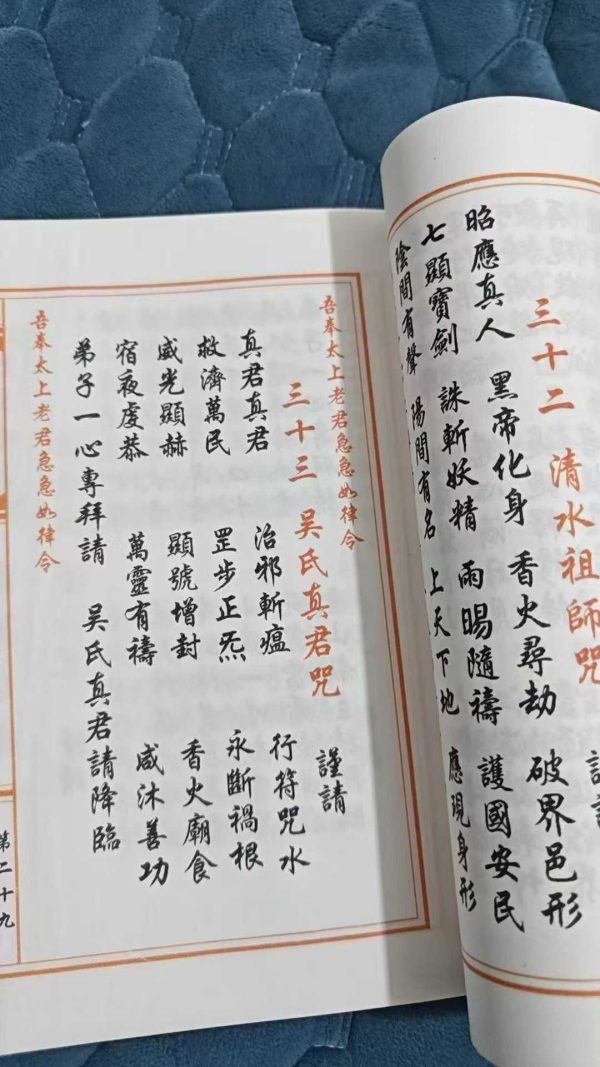 三十二 清水祖師咒
昭應真人 黑帝化身 香火尋劫 破界邑形
七顯寶劍 誅斬妖精 雨暘隨禱 護國安民
陰間有聲 陽間有名 上天下地 應現身形
吾奉太上老君急急如律令
三十三 吳氏真君咒 謹請
真君真君 治邪斬瘟 行符咒水
救濟萬民 罡步正炁 永斷禍根
威光顯赫 顯號增封 香火廟食
宿夜虔恭 萬靈有禱 咸沐善功
弟子一心專拜請 吳氏真君請降臨
吾奉太上老君急急如律令
第二十九